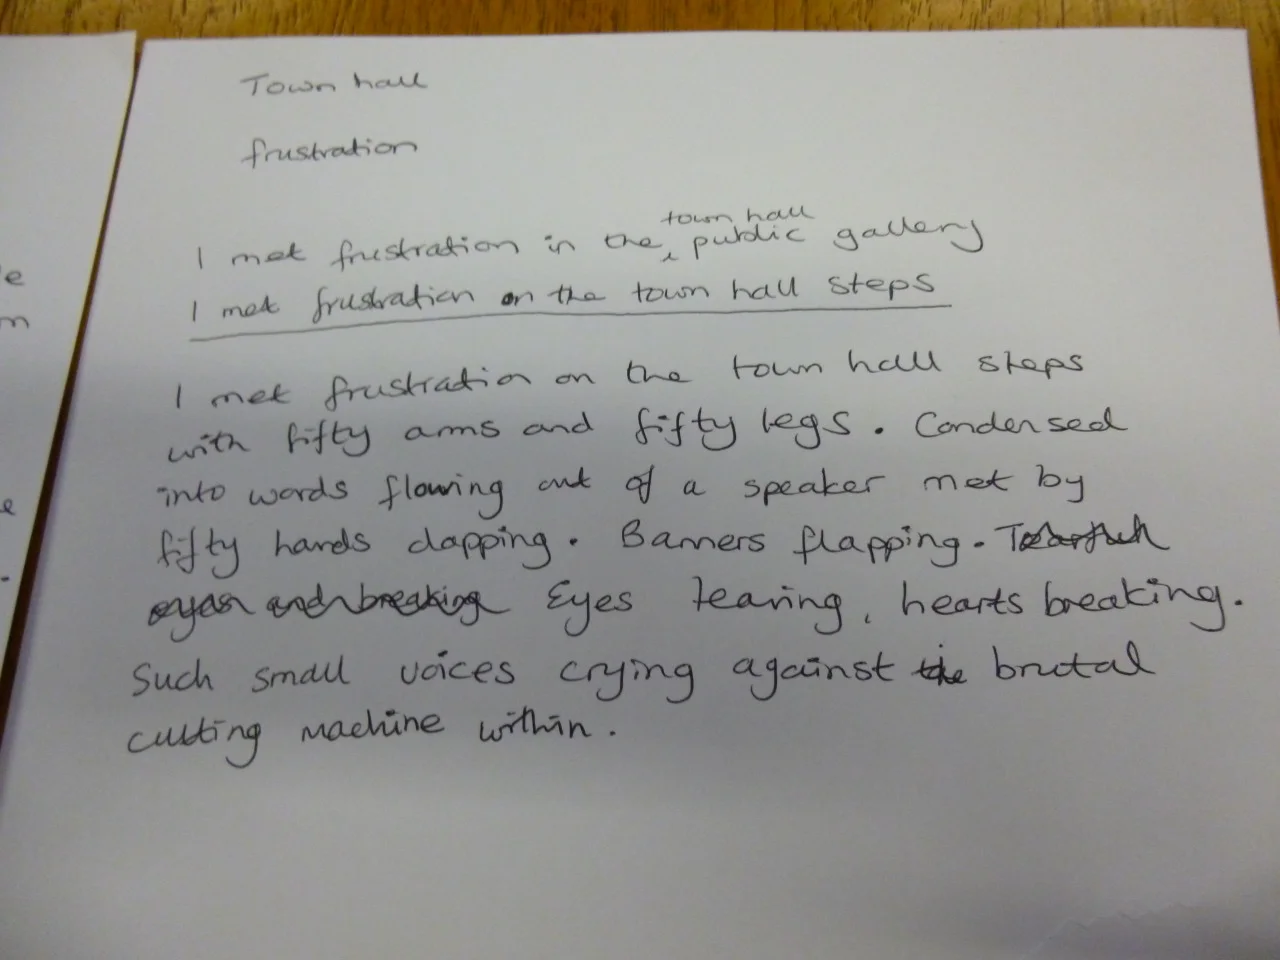 Town hall
frustration
town hall
I met frustration in the public gallery
I met frustration on the town hall steps
I met frustration on the town hall steps
with fifty arms and fifty legs. Condensed
into words flowing out of a speaker met by
fifty hands clapping. Banners flapping.
and breaking Eyes tearing, hearts breaking.
Such small voices crying against the brutal
cutting machine within.
e
m
e
.